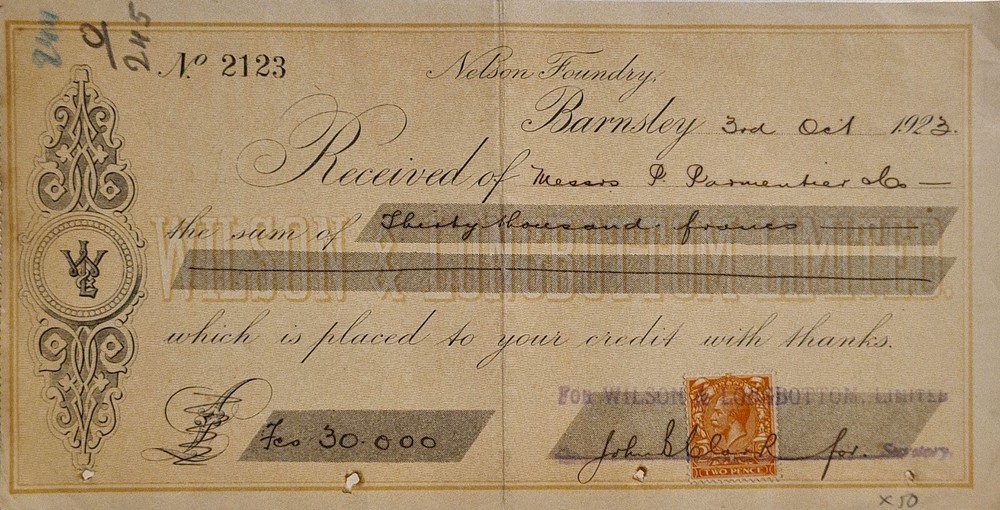 244
0/245
No 2123
Nelson Foundry,
Barnsley 3rd Oct 1923.
Received of Messrs P. Parmentier & Co —
the sum of Thirty thousand francs
WILSON & LONGBOTTOM LIMITED.
which is placed to your credit with thanks.
£ Fcs 30.000
FOR WILSON & LONGBOTTOM, LIMITED
John S Clark for. Secretary.
TWO PENCE
x 50